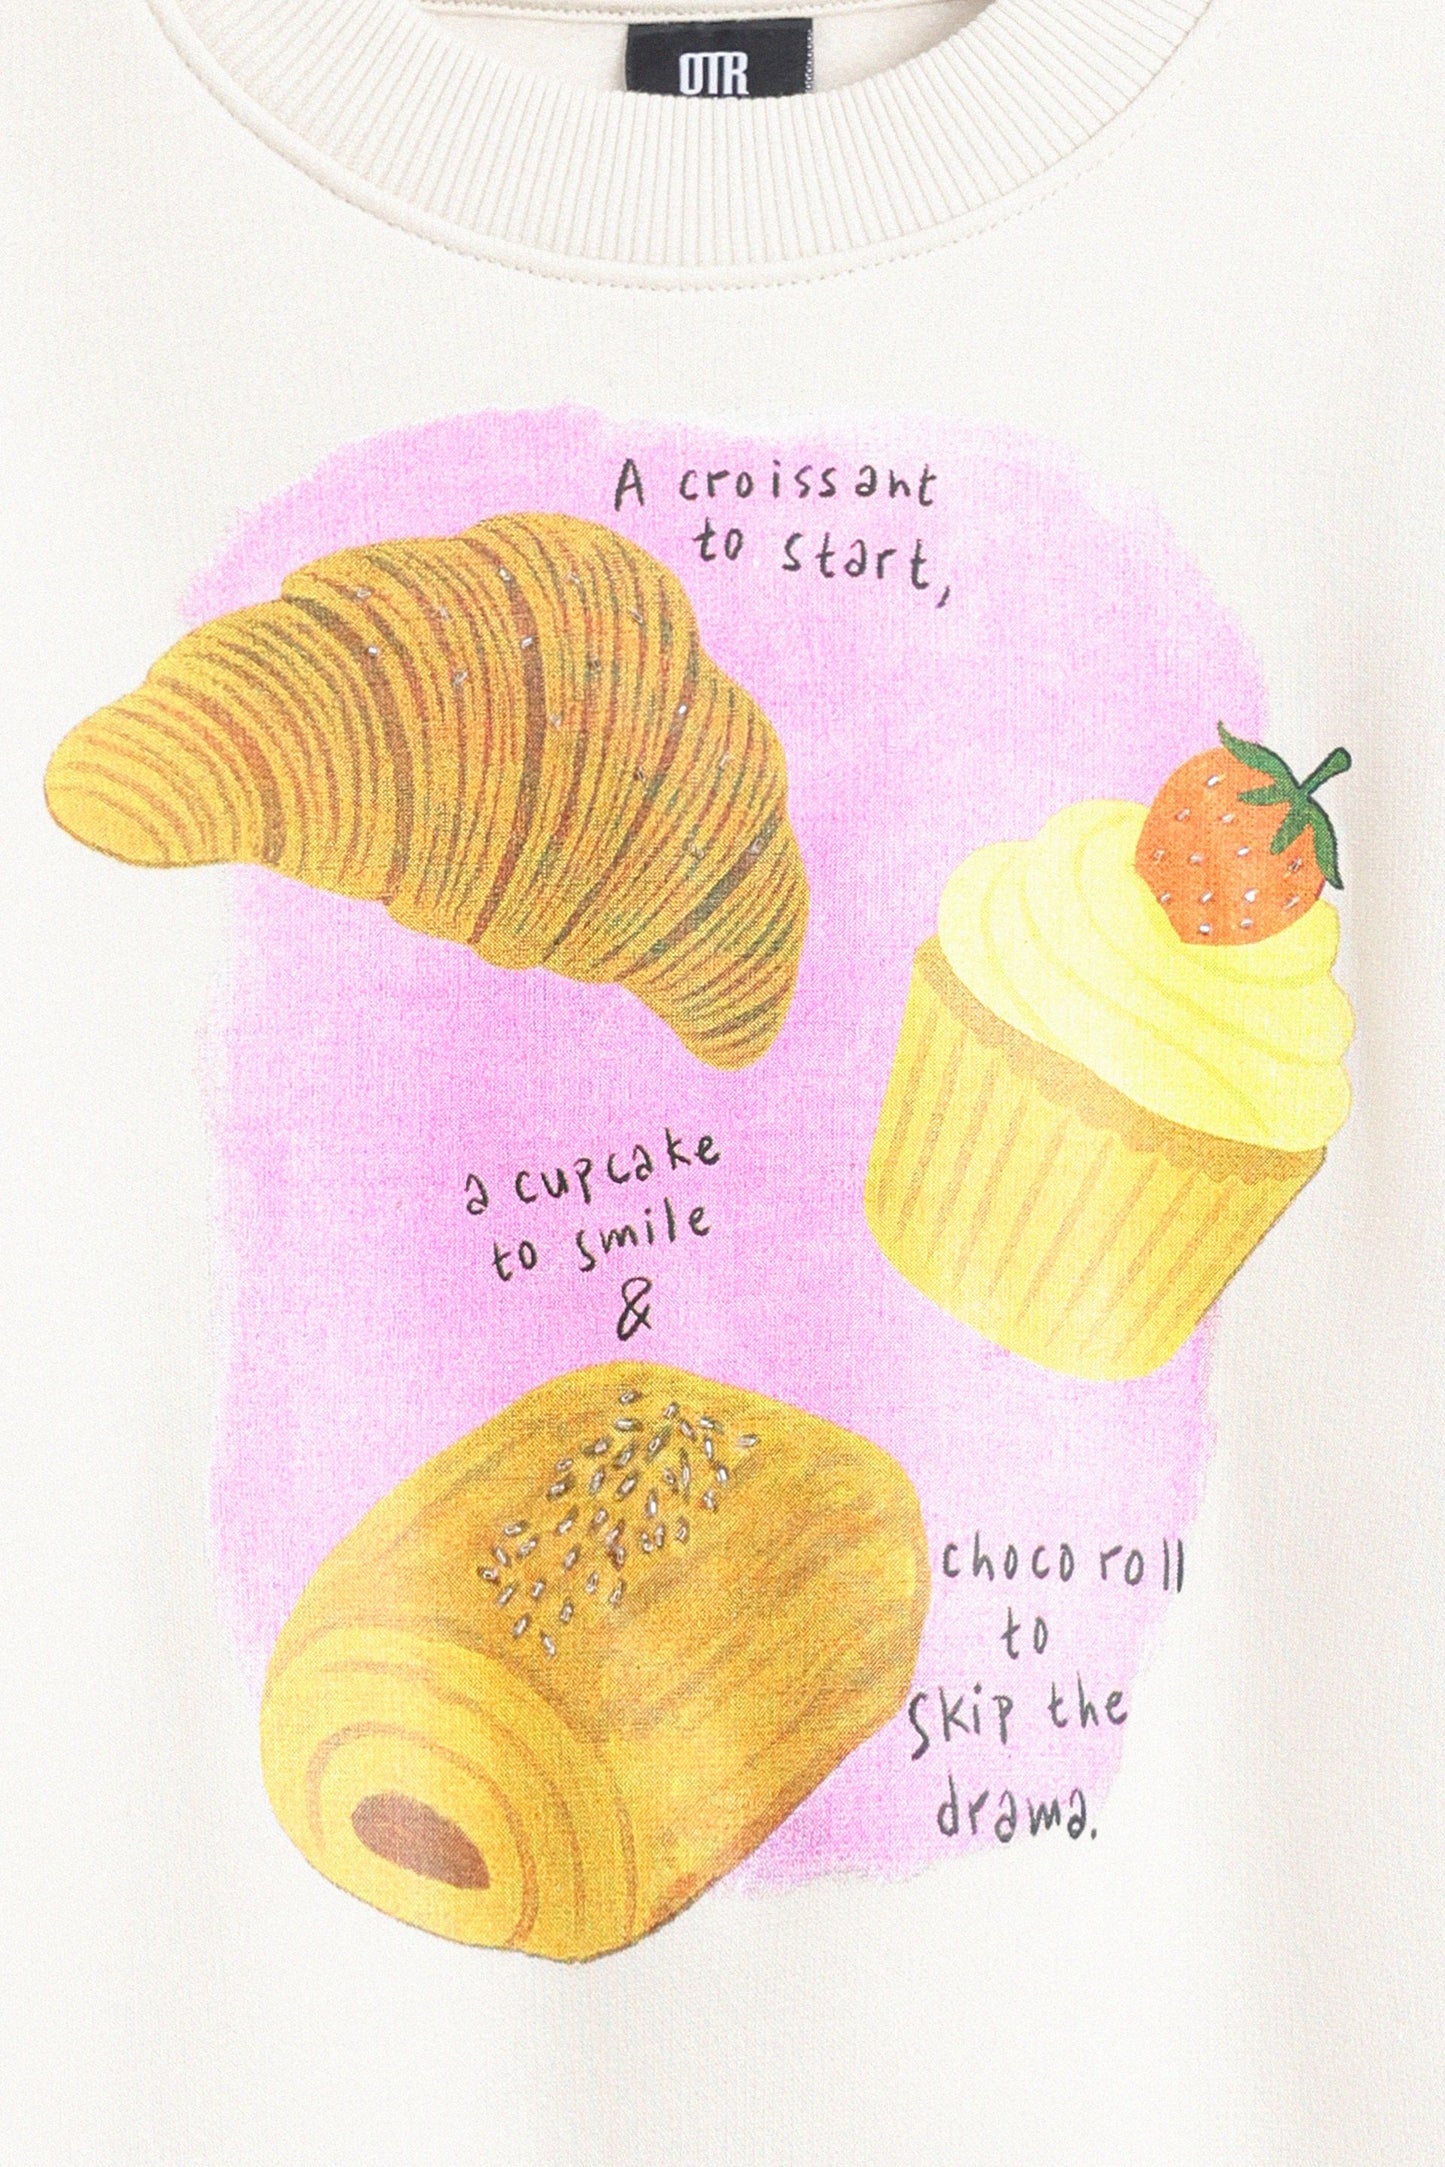 OTR
A croissant
to start,
a cupcake
to smile
&
choco roll
to
skip the
drama.